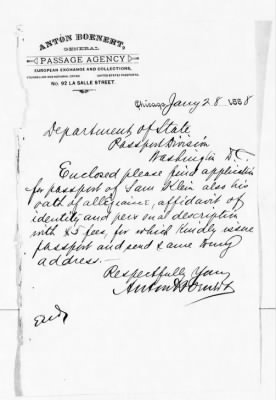 ANTON BOENERT,
GENERAL
PASSAGE AGENCY
EUROPEAN EXCHANGE AND COLLECTIONS,
UNITED STATES PASSPORTS.
No. 92 LA SALLE STREET.
Chicago, Jany 28 1888
Department of State
Passport Division
Washington D.C.
Enclosed please find application
for passport of Sam Klein also his
oath of allegiance, affidavit of
identity and personal description
with $5 fees, for which Kindly issue
passport and send same to my
address.—
Respectfully Yours
Anton Boenert